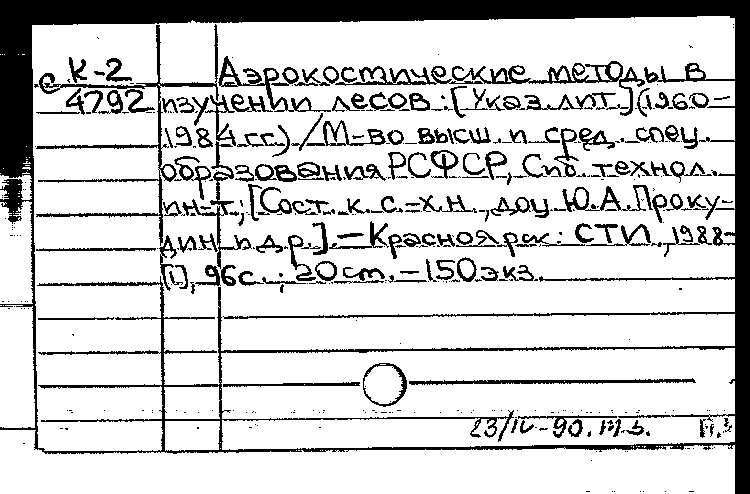 с К-2
4792
Аэрокостические методы в
изучении лесов : [Указ. лит.] (1960–
1984 гг.) / М-во высш. и сред. спец.
образования РСФСР, Сиб. технол.
ин-т; [Сост. к. с.-х. н., доц. Ю.А. Проку-
дин и др.]. – Красноярск : СТИ, 1988–
[1], 96 с. ; 20 см. – 150 экз.
23/IV-90.